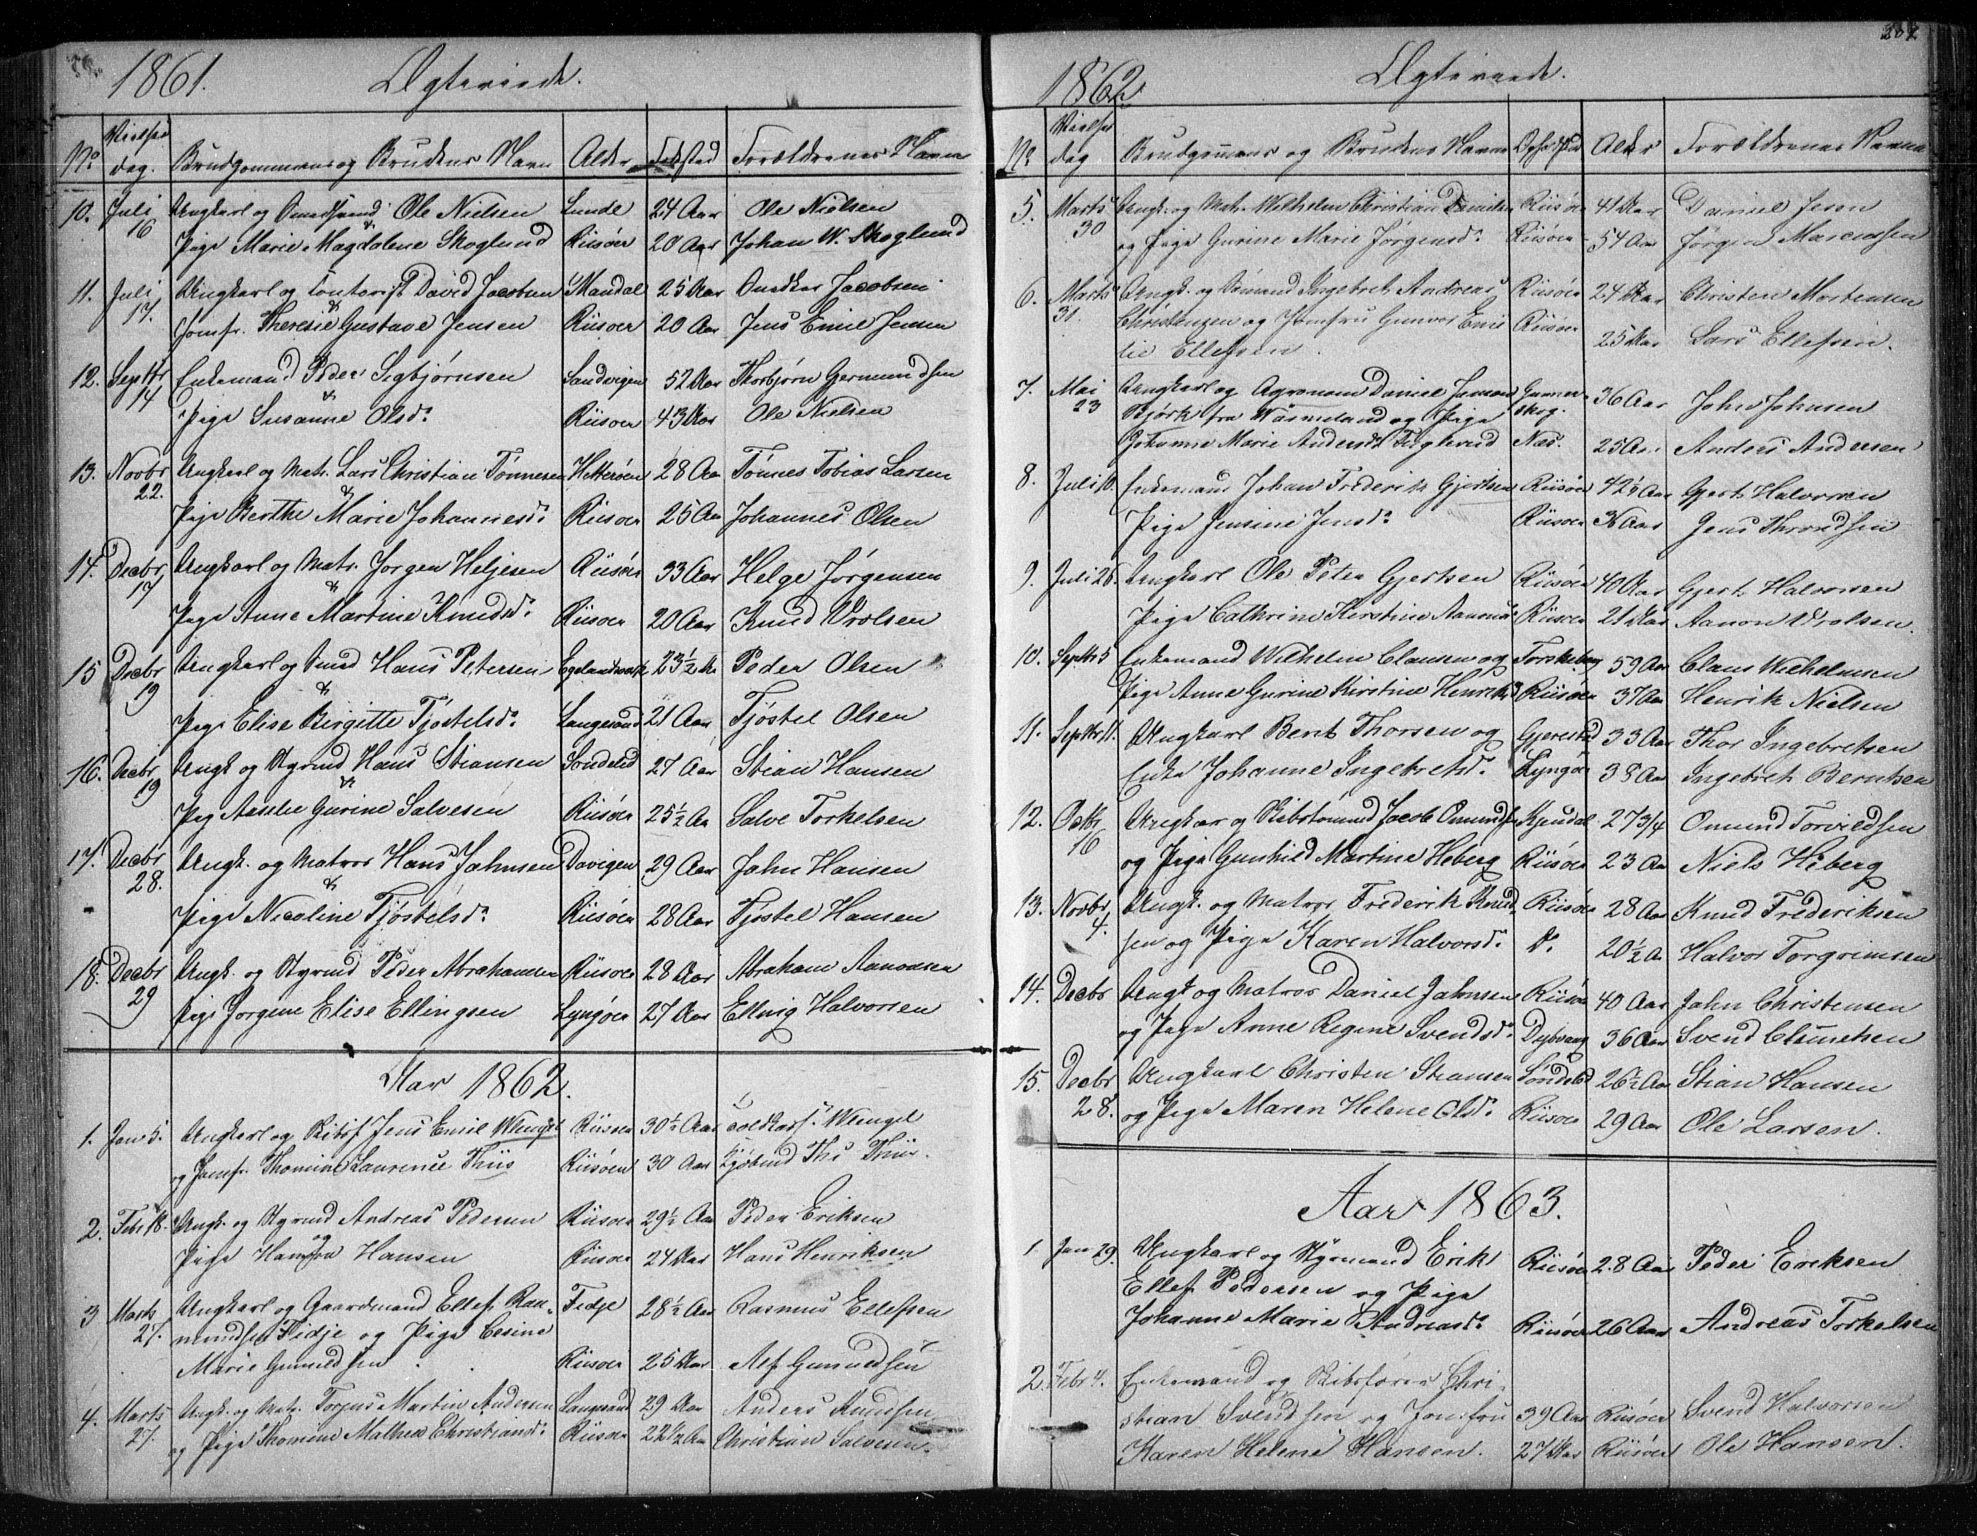 1861. Ægteviede.
No Vielses dag. Brudgommens og Brudens Navn Alder Fødested Forældrenes Navn
10. Juli 16 Ungkarl og Ole Nielsen Lunde 24 Aar Ole Nielsen
Pige Marie Magdalene Skoglund Riisøer 20 Aar Johan W. Skoglund
11. Juli 17. Ungkarl og Contorist David Jacobsen Mandal 25 Aar Jacobsen
Jomfr. Theresie Gustave Jensen Riisøer 20 Aar Jens Emil Jensen
12. Septbr 14 Enkemand Peder Sigbjørnsen Sandvigen 52 Aar Thorbjørn Germundsen
Pige Susanne Olsd. Riisøer 43 Aar Ole Nielsen
13. Novbr 22. Ungkarl og Matr. Lars Christian Tønnesen Hetterøen 28 Aar Tønnes Tobias Larsen
Pige Berthe Marie Johannesd. Riisøer 25 Aar Johannes Olsen
14. Decbr 17 Ungkarl og Matr. Jørgen Heljesen Riisøer 33 Aar Helge Jørgensen
Pige Anne Martine Knudsd. Riisøer 20 Aar Knud Vrolsen
15 Decbr 19 Ungkarl og Smed Hans Petersen Egelandsværk 23½ Aar Peder Olsen
Pige Elise Birgitte Tjøstelsd. Langesund 21 Aar Tjøstel Olsen
16. Decbr 19 Ungk og Styrmd Hans Stiansen Søndeled 27 Aar Stian Hansen
Pige Gurine Salvesen Riisøer 25½ Aar Salve Torkelsen
17. Decbr 28. Ungk. og Matros Hans Jahnsen Dovigen 29 Aar Jahn Hansen
Pige Nicoline Tjøstelsd. Riisøer 28 Aar Tjøstel Hansen
18. Decbr 29 Ungk. og Styrmd Peder Abrahamsen Riisøer 28 Aar Abraham Aanonsen
Pige Jørgine Elise Ellingsen Lyngøer 27 Aar Elling Halvorsen
Aar 1862.
1. Jan 5. Ungkarl og Jens Emil Wengel Riisøer 30½ Aar Wengel
og Jomfr. Thomine Laurence Thiis Riisøer 30 Aar Ths Thiis.
2. Febr 18. Ungk. og Styrmd Andreas Pedersen Riisøer 29½ Aar Peder Eriksen
Pige Hansen Riisøer 24 Aar Hans Henriksen
3 Marts 27. Ungkarl og Gaardmand Ellef Ras-
mundsen Fidje og Pige Gesine Fidje 28½ Aar Rasmus Ellefsen
Marie Gunuldsen Riisøer 25 Aar Alf Gunuldsen
4. Marts 27. Ungk. og Matr. Torjus Martin Andersen Langesund 29 Aar Anders Knudsen
og Pige Thomine Mathea Christiansd. Riisøer 22½ Aar Christian Salvesen.
1862 Ægteviede.
No Vielses dag Brudgomens og Brudens Navn Alder Forældrenes Navne
5. Marts 30 Ungk. og Matr. Wilhelm Christian Danielsen Riisøer 41 Aar Daniel Jenn
og Pige Gurine Marie Jørgensd. Riisøer 54 Aar Jørgen Marcussen
6. Marts 31. Ungk. og Sømand Ingebret Andreas Riisøer 24 Aar Christen Mortensen
Christensen og Jomfru Gunvor Emi- Riisøer
lie Ellefsen. 25 Aar Lars Ellefsen.
7. Mai 23 Ungkarl og Agronom Daniel Jansen Gunner- 36 Aar John Johnsen
Bjørk fra Wærmeland og Pige skog.
Johanne Marie Andersd. Fuglesund Næs. 25 Aar Anders Andersen
8. Juli 10. Enkemand Johan Frederik Gjertsen Riisøer 42½ Aar Gjert Halvorsen
Pige Jensine Jensd. Riisøer 36 Aar Jens Throndsen
9. Juli 26. Ungkarl Ole Peter Gjertsen Riisøer 40 Aar Gjert Halvorsen
Pige Cathrine Kirstine Aanonsd. Riisøer 21 Aar Aanon Vrolsen.
10. Septbr 5 Enkemand Wilhelm Clausen og 59 Aar Claus Wilhelmsen
Pige Anne Gurine Kirstine Henriksd. Riisøer 37 Aar Henrik Nielsen
11. Septbr 11. Ungkarl Bent Thorsen og Gjerestad 33 Aar Thor Ingebretsen
Enke Johanne Ingebretsd. Lyngøer 38 Aar Ingebret Berntsen
12. Octbr 16 Ungkar og Skibstømmd Jacob Omundsen Kjendal 27 3/4 Omund Torvildsen
og Pige Gunhild Martine Heberg Riisøer 23 Aar Niels Heberg
13. Novbr 4. Ungk. og Matros Frederik Knud- Riisøer 28 Aar Knud Frederiksen
sen og Pige Karen Halvorsd. Do. 20½ A Halvor Torgrimsen
14. Decbr Ungk og Matros Daniel Jahnsen Riisøer 40 Aar Jahn Christensen
og Pige Anne Regine Svendsd. Dybvaag 36 Aar Svend Clemetsen
15. Decbr 28. Ungkarl Christen Stiansen Søndeled 26½ Aar Stian Hansen
og Pige Maren Helene Olsd. Riisøer 29 Aar Ole Larsen.
Aar 1863.
1. Jan 29. Ungkarl og Styrmand Erik Riisøer 28 Aar Peder Eriksen
Ellef Pedersen og Pige
Johanne Marie Andreasd. Riisøer 26 Aar Andreas Torkelsen
2. Febr 4. Enkemand og Skibsfører Chri-
stian Svendsen og Jomfru 39 Aar Riisøer Svend Halvorsen
Karen Helene Hansen. 27 Aar Riisøer Ole Hansen.